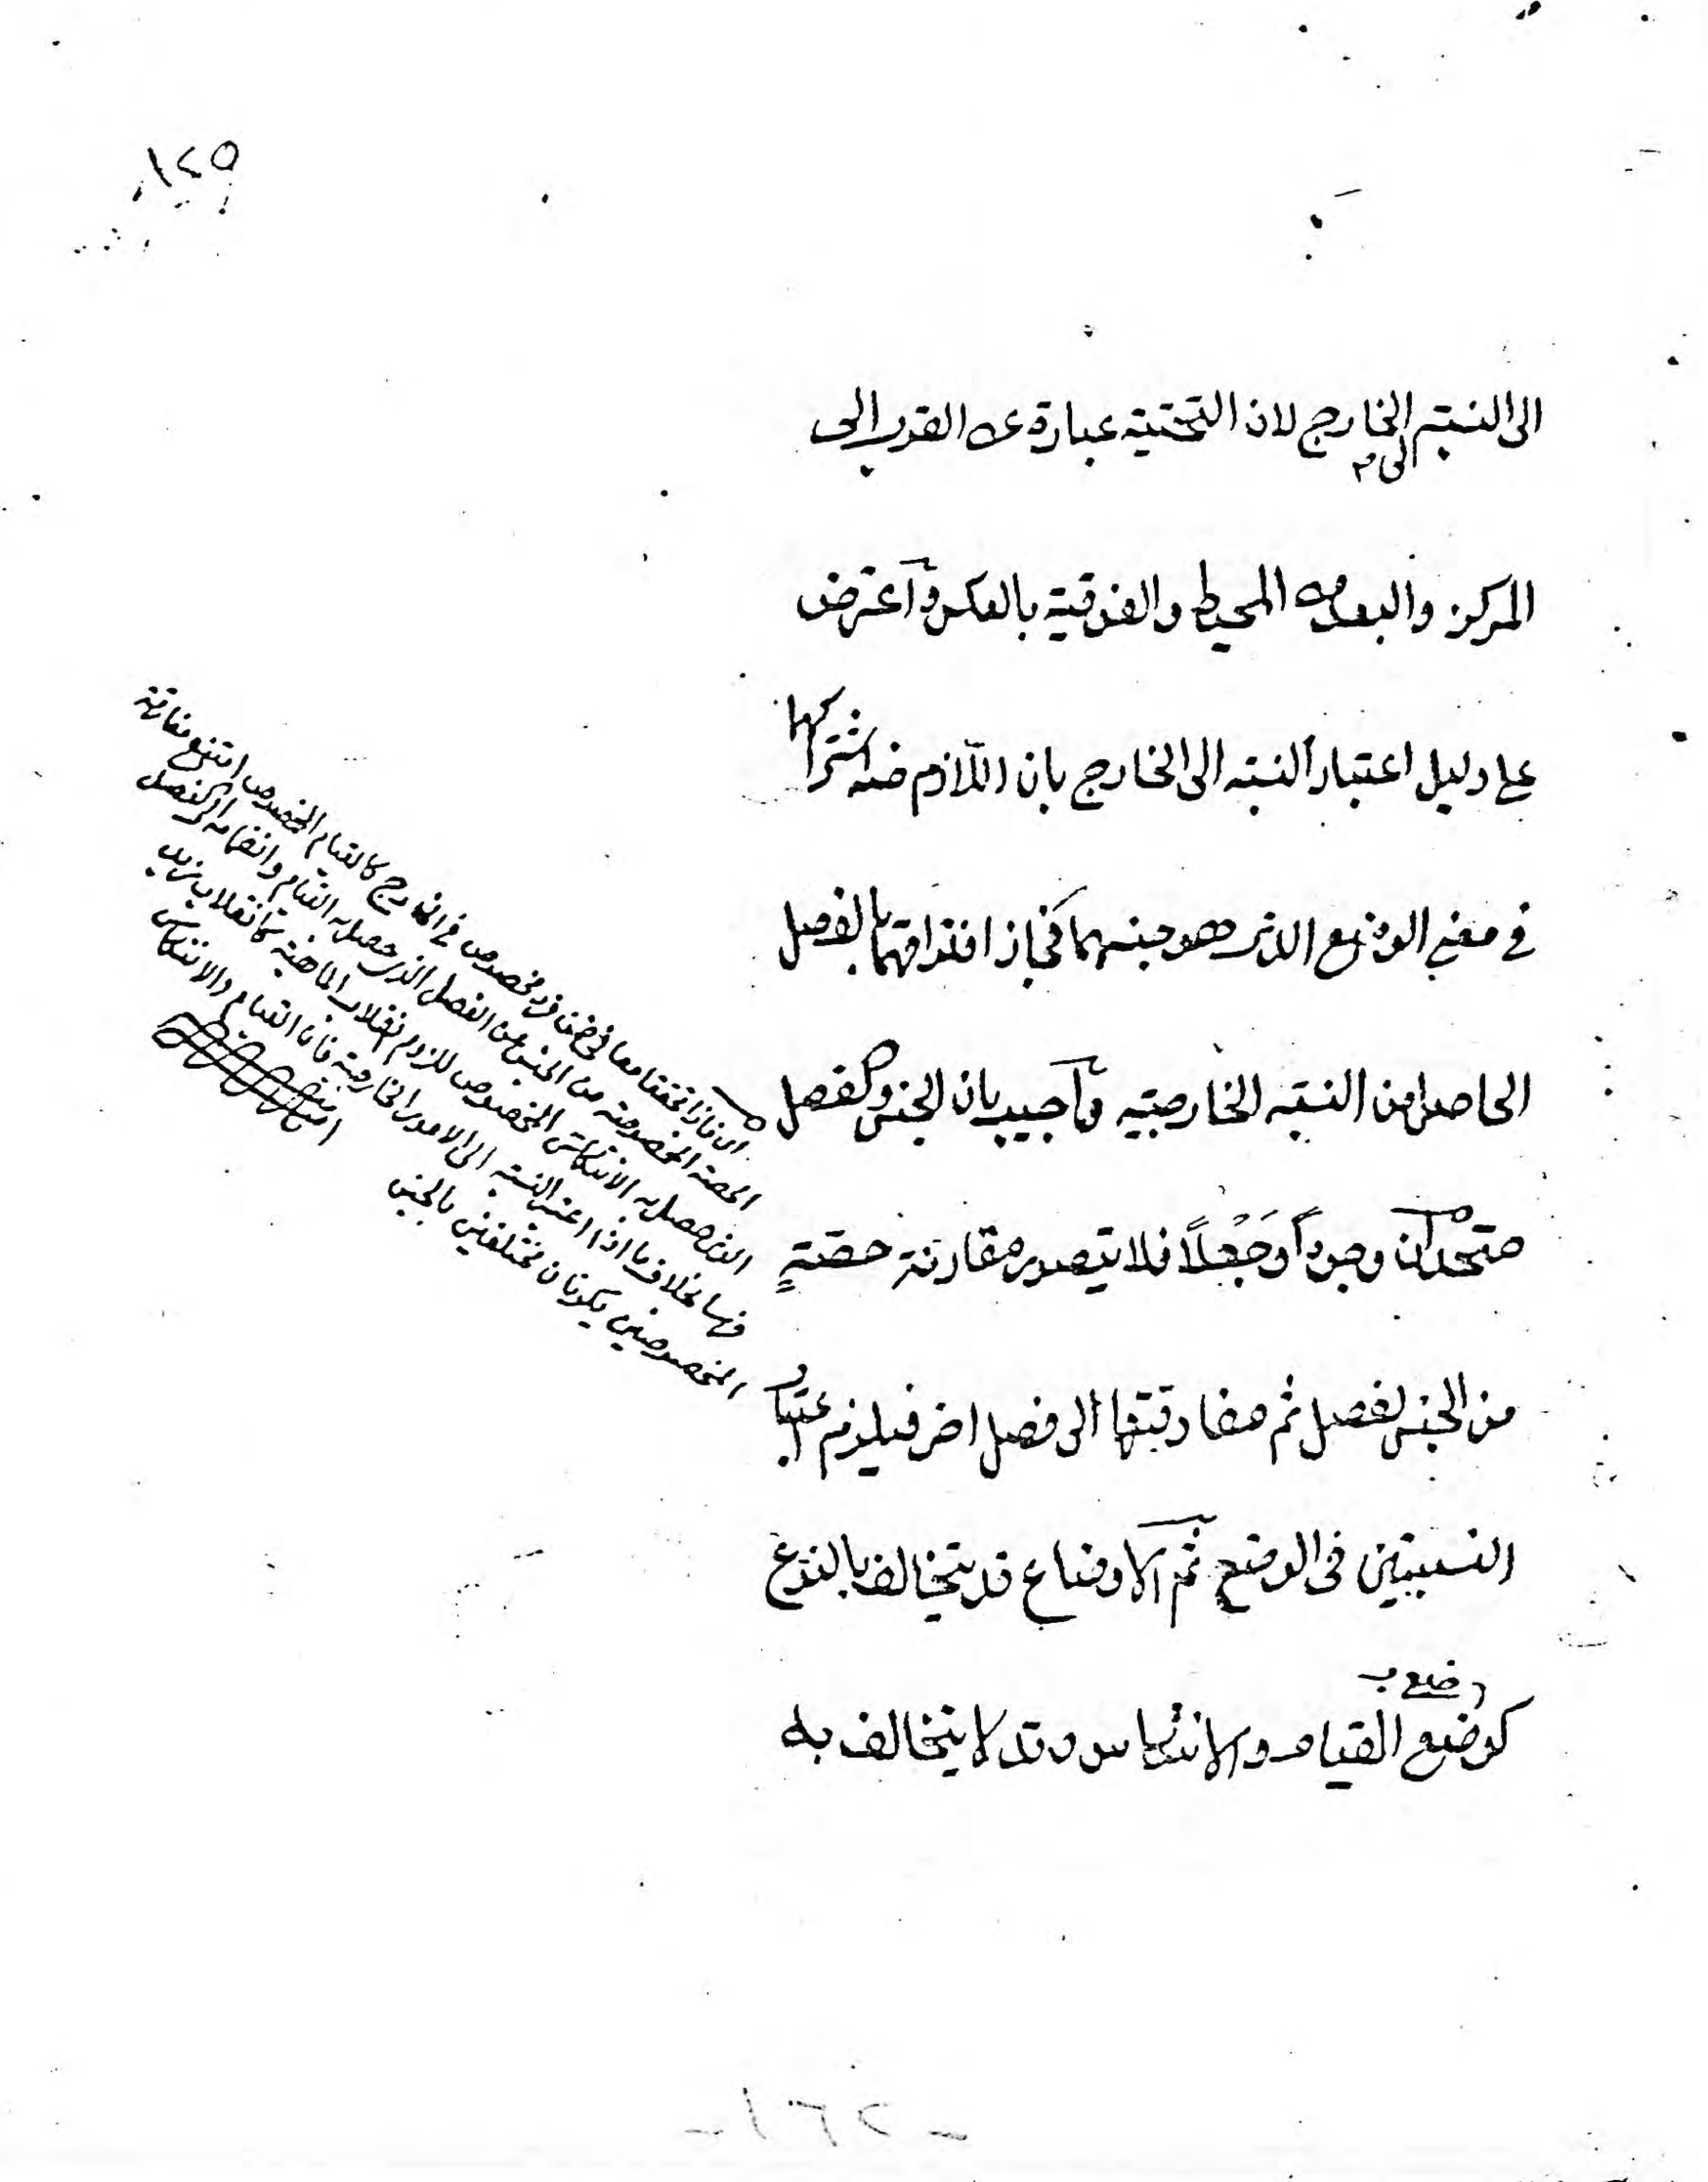 ١٤٩
الى النسبة الخارج لان التحتية عبارة عن القرب الى
الى م
المركز والبعد من المحيط والفوقية بالعكس واعترض
على دليل اعتبار النسبة الى الخارج بان اللازم منه اشتراكهما
في معنى الوضع الذى هو جنسهما فجاز افتراقهما بالفصل
الحاصل من النسبة الخارجيه وأجيب بان الجنس والفصل
متحدان وجوداً وجَعْلاً فلا يتصور مقارنة حصّةٍ
من الجنس لفصل ثم مفارقتها الى فصل اخر فيلزم اعتبار
النسبتين فى الوضع ثم الاوضاع قد يتخالف بالنوع
وضع ب
كوضع القيام والانتكاس وقد لا يتخالف به
اى فاذا تحققا معا في ضمن فرد مخصوص في الخارج كالقيام المخصوص امتنع مفارقة
الحصة المخصوصة من الجنس عن الفصل الذى حصل به القيام وانضمامه الى الفصل
الذى حصل به الانتكاس المخصوص للزوم انقلاب الماهية كانقلاب زيد
بخلاف ما اذا اعتبر النسبة الى الامور الخارجية فان القيام والانتكاس
المخصوصين يكونان مختلفين بالجنس